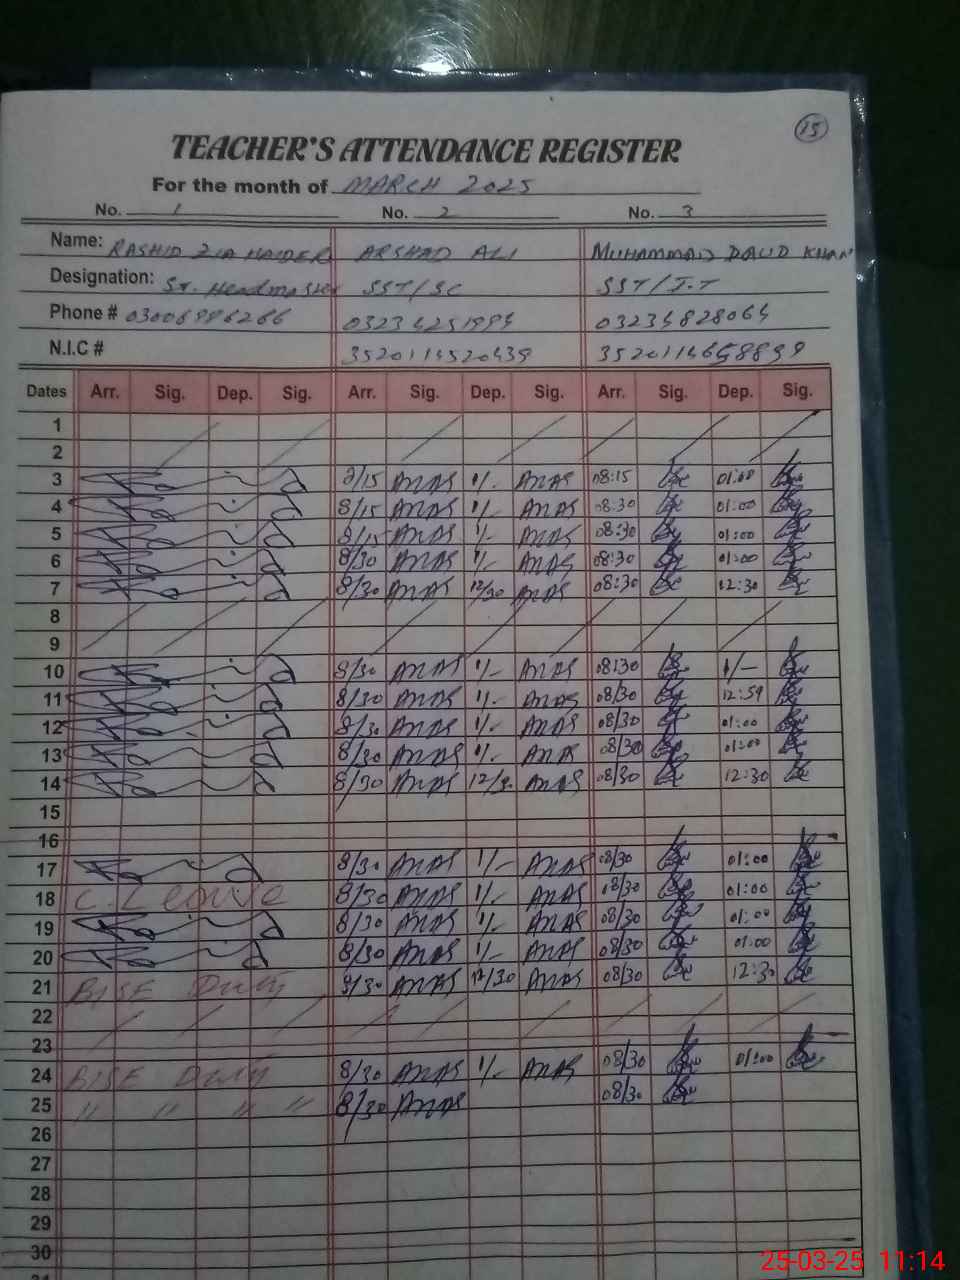 15
TEACHER'S ATTENDANCE REGISTER
For the month of MARCH 2025
No. 1 No. 2 No. 3
Name: RASHID ZIA HAIDER ARSHAD ALI MUHAMMAD DAUD KHAN
Designation: Sr. Headmaster SST/SC SST/I.T
Phone #
N.I.C #
Dates Arr. Sig. Dep. Sig. Arr. Sig. Dep. Sig. Arr. Sig. Dep. Sig.
1
2
3 8/15 1/- 08:15 01:00
4 8/15 1/- 08:30 01:00
5 8/15 1/- 08:30 01:00
6 8/30 1/- 08:30 01:00
7 8/30 12/30 08:30 12:30
8
9
10 8/30 1/- 08:30 1/-
11 8/30 1/- 08/30 12:59
12 8/30 1/- 08/30 01:00
13 8/30 1/- 08/30 01:00
14 8/30 12/30 08/30 12:30
15
16
17 8/30 1/- 08/30 01:00
18 C. Leave 8/30 1/- 08/30 01:00
19 8/30 1/- 08/30 01:00
20 8/30 1/- 08/30 01:00
21 BISE Duty 8/30 12/30 08/30 12:30
22
23
24 BISE Duty 8/30 1/- 08/30 01:00
25 〃 〃 〃 〃 8/30 08/30
26
27
28
29
30
25-03-25 11:14